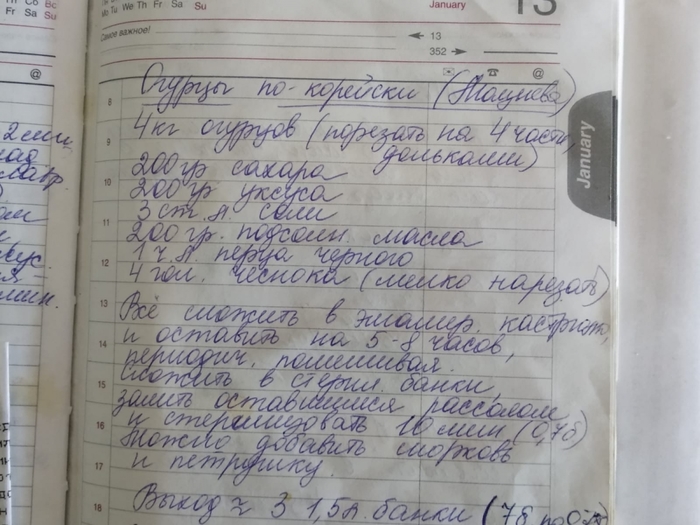 Mo Tu We Th Fr Sa Su
Fr Sa Su
January
13
Самое важное!
13
352
@
@
8 Огурцы по-корейски (Мацнева)
4кг огурцов (порезать на 4 части,
9 дольками)
200гр сахара
10 200гр уксуса
3 ст. л. соли
11 200 гр. подсолн. масла
1 ч. л. перца черного
12 4 гол. чеснока (мелко нарезать)
13 Всё сложить в эмалир. кастрюлю,
и оставить на 5-8 часов,
14 периодич. помешивая.
Сложить в стерил. банки,
15 залить оставшимся рассолом
и стерилизовать 10 мин (0,7б)
16 Можно добавить морковь
и петрушку.
17
Выход ≈ 3 1,5л. банки (7б по 0,7л)
18
January